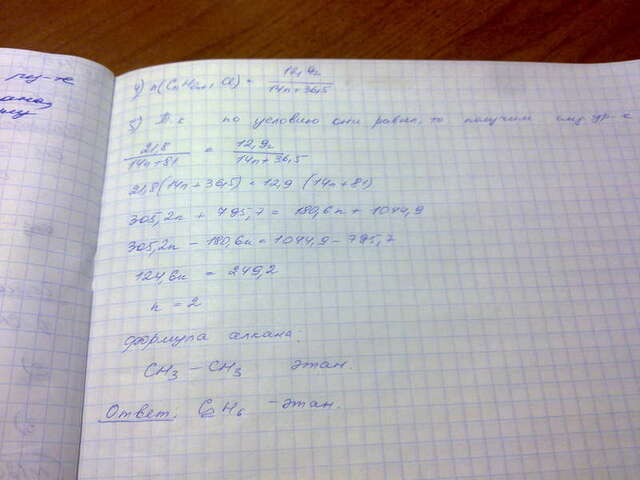 4) n(CnH2n+1Cl) = 12,9г / 14n+36,5
5) Т.к по условию они равны, то получим ур-е
21,8 / 14n+81 = 12,9г / 14n+36,5
21,8(14n+36,5) = 12,9 (14n+81)
305,2n + 795,7 = 180,6n + 1044,9
305,2n - 180,6n = 1044,9 - 795,7
124,6n = 249,2
n = 2
формула алкана:
CH3 – CH3 этан.
Ответ. C2H6 – этан.